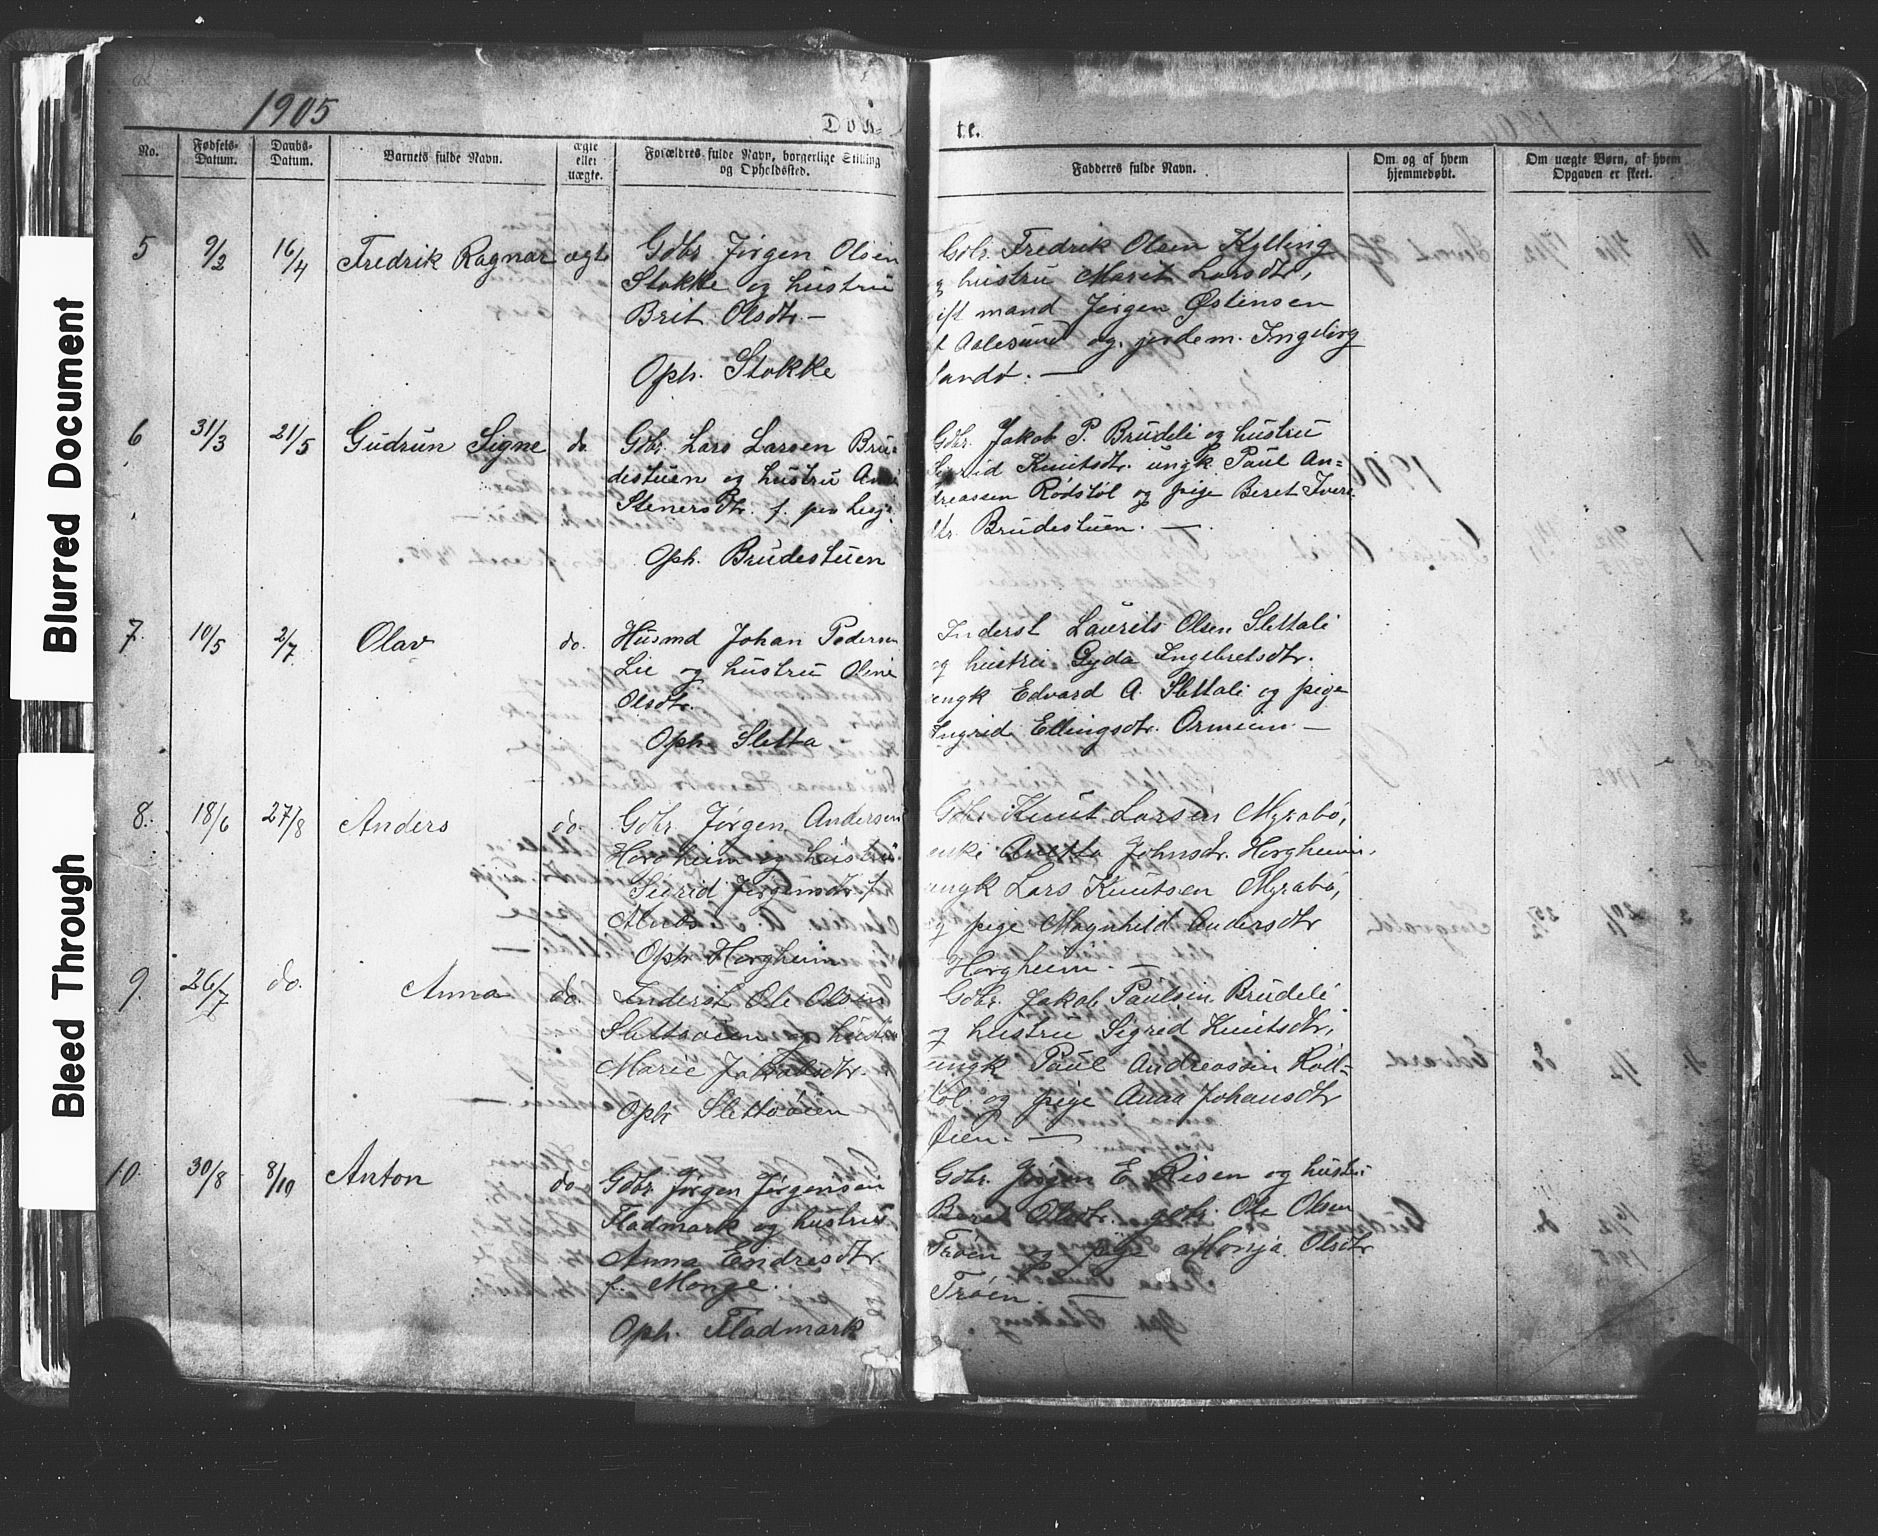 Blurred Document
Bleed Through
1905
Døb-
te.
No.
Fødsels-
Datum.
Daabs-
Datum.
Barnets fulde Navn.
ægte
eller
uægte.
Forældres fulde Navn, borgerlige Stilling
og Opholdssted.
Fadderes fulde Navn.
Om og af hvem
hjemmedøbt.
Om uægte Børn, af hvem
Opgaven er skeet.
5 9/2 16/4 Fredrik Ragnar ægte
Gdbr. Jørgen Olsen
Stokke og hustru
Brit Olsdtr. —
Oph. Stokke
Gdbr. Fredrik Olsen Kylling
og hustru Marit Larsdtr,
gift mand Jørgen Østensen
f Aalesund og jordem. Ingeborg
Sandø. —
6 31/3 21/5 Gudrun Signe do.
Gbr. Lars Larsen Bru-
destuen og hustru Ane
Stenersdtr. f.
Oph. Brudestuen
Gdbr. Jakob P. Brudeli og hustru
Sigrid Knutsdtr. ungk. Paul An=
dreassen Rødstøl og pige Beret Ivers
dtr. Brudestuen. —
7. 10/5 2/7 Olav do.
Husmd Johan Pedersen
Lie og hustru Oline
Olsdtr.
Oph. Sletta
Inderst Laurits Olsen Slettali
og hustru Gyda Ingebretsdtr.
ungk Edvard A. Slettali og pige
Ingrid Ellingsdtr. Ormeim —
8. 18/6 27/8 Anders do.
Gdbr. Jørgen Andersen
Horgheim og hustru
Sigrid Jørgensdtr. f.
Alnæs
Oph Horgheim
Gdbr. Knut Larsen Myrabø,
enke Anetta Johnsdtr. Horgheim,
ungk Lars Knutsen Myrabø,
og pige Magnhild Andersdtr
Horgheim. —
9. 26/7 do. Anna do.
Inderst Ole Olsen
Slettøien og hustru
Marie Jakobsdtr.
Oph Slettøien
Gdbr. Jakob Paulsen Brudeli
og hustru Sigrid Knutsdtr,
ungk Paul Andreassen Rød=
støl og pige Anna Johansdtr
Øien. —
10. 30/8 8/10 Anton do.
Gdbr Jørgen Jørgensen
Fladmark og hustru
Anna Endresdtr
f. Monge.
Oph. Fladmark
Gdbr. Jørgen E. Risen og hustru
Beret Olsdtr. gdbr. Ole Olsen
Trøen og pige Olsdtr
Trøen. —